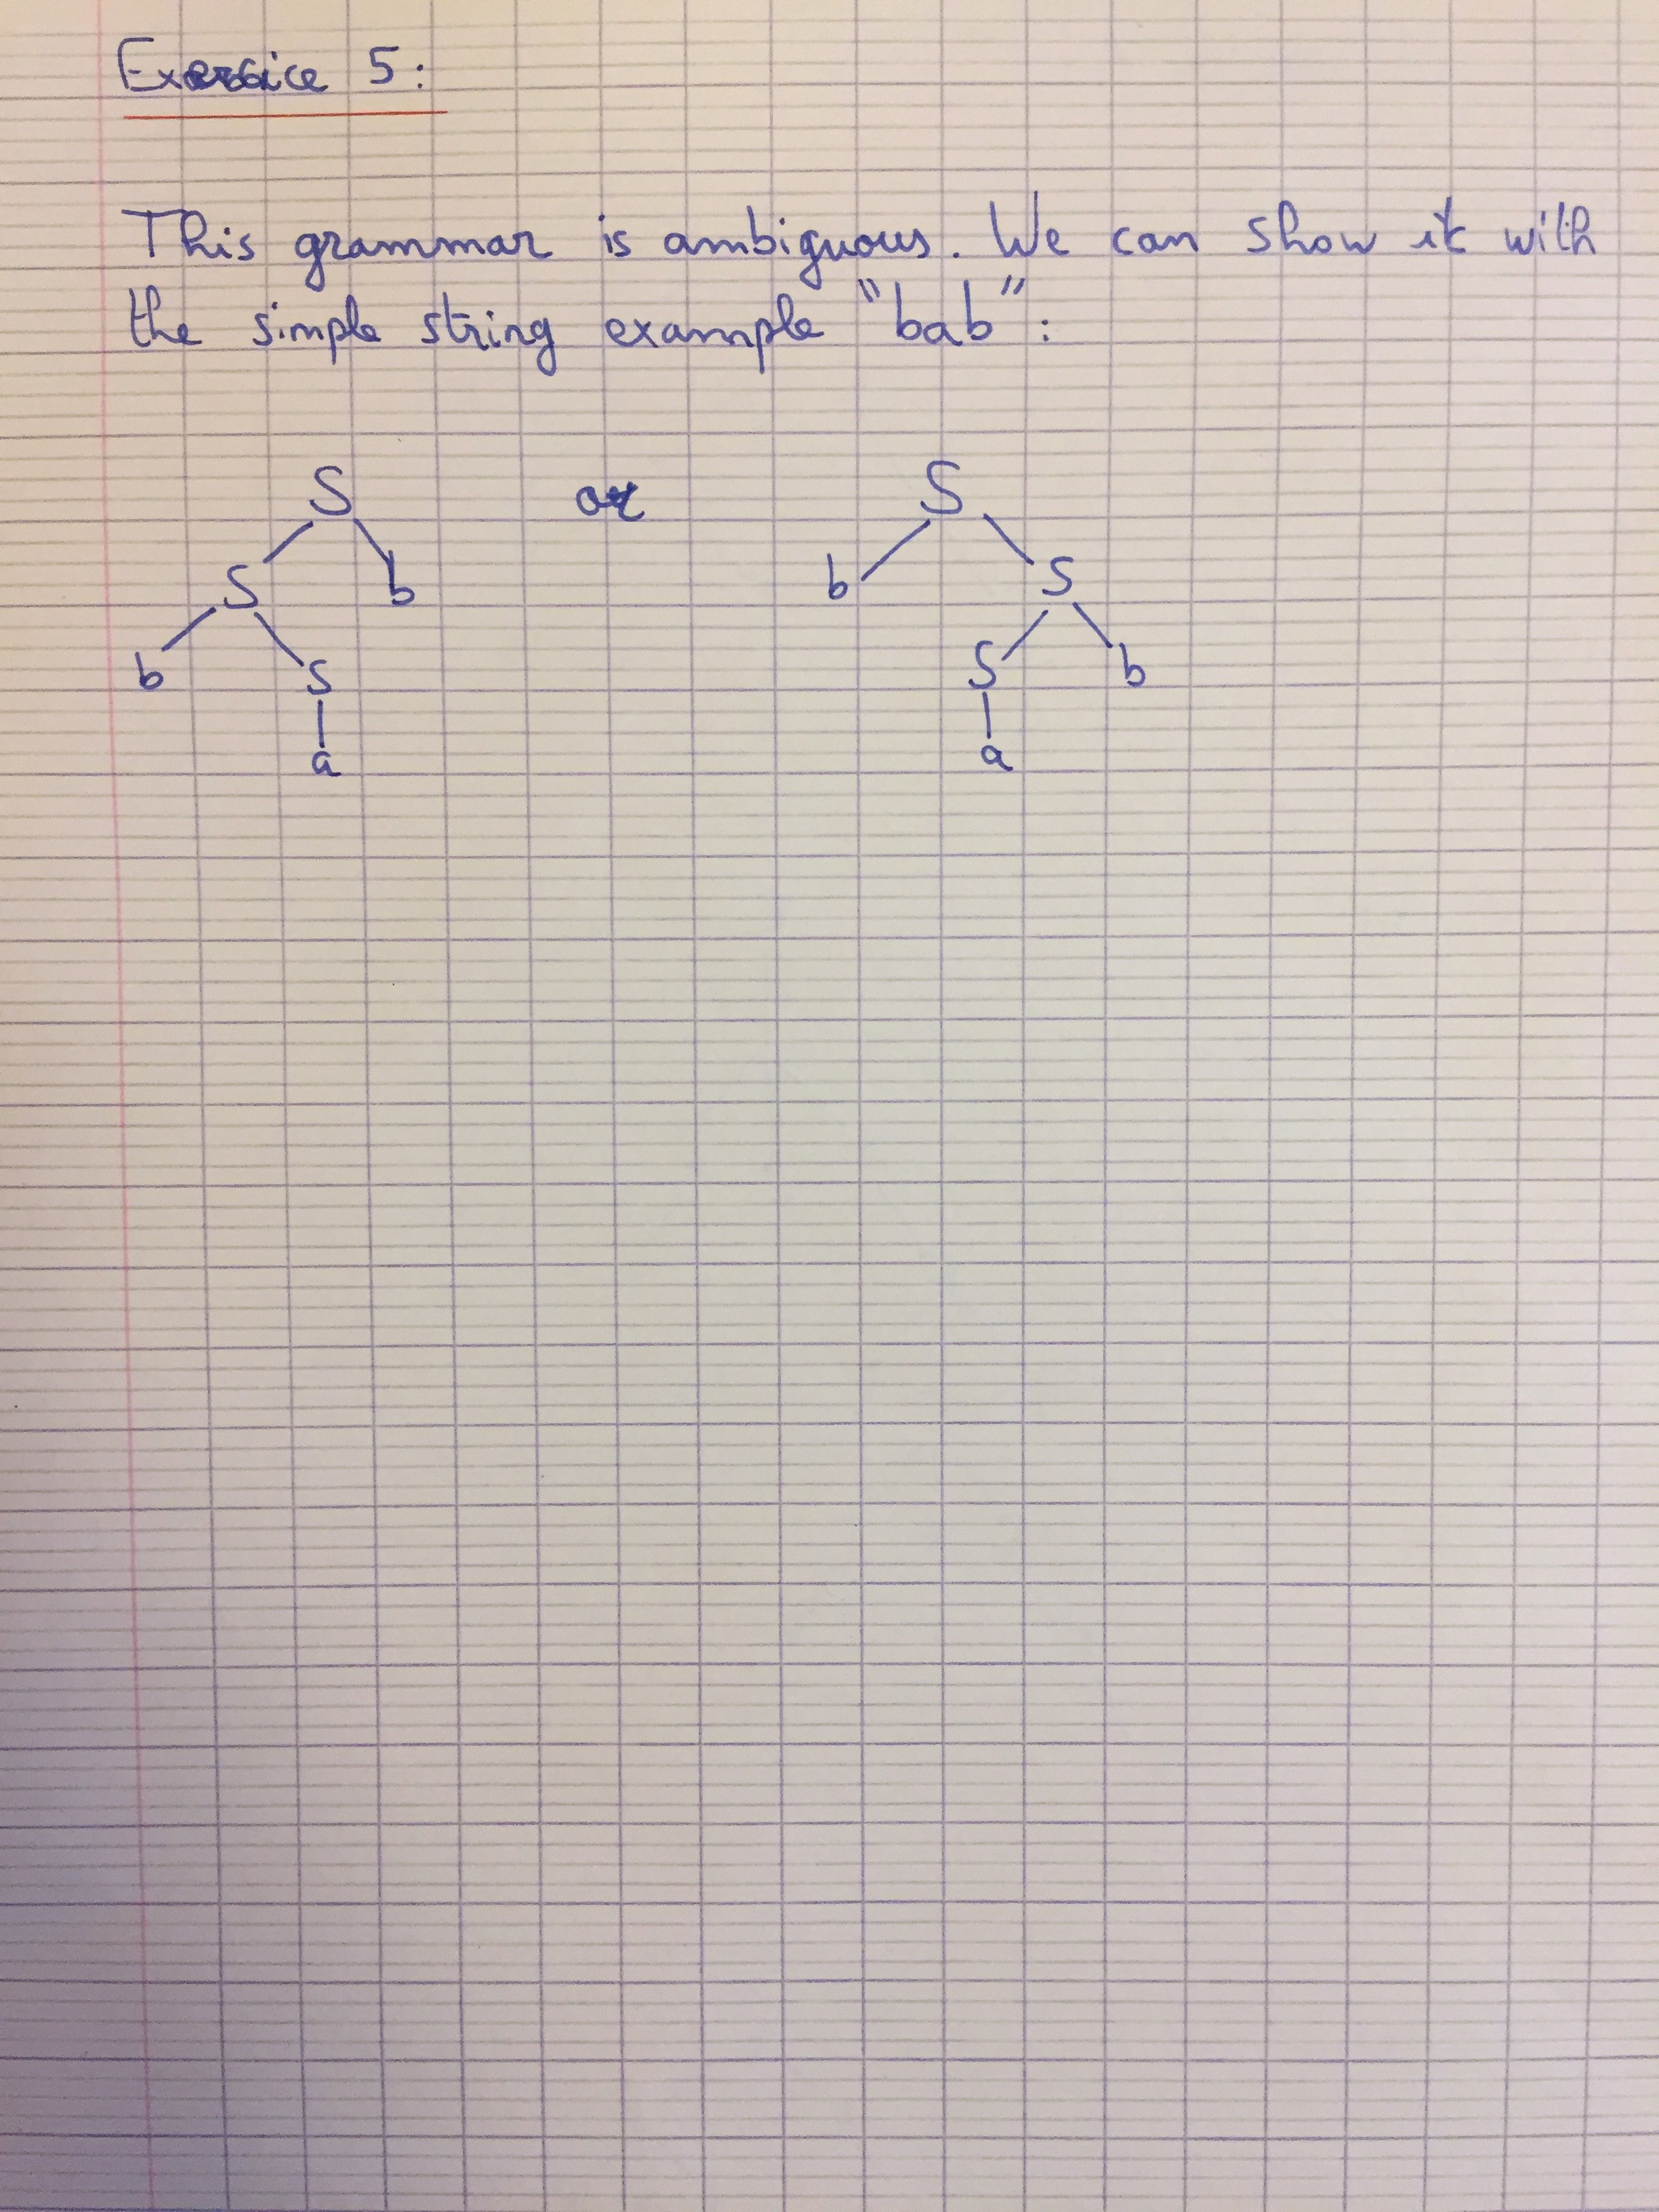 Exercice 5:
This grammar is ambiguous. We can show it with
the simple string example "bab":
S or S
S b b S
b S S b
a a